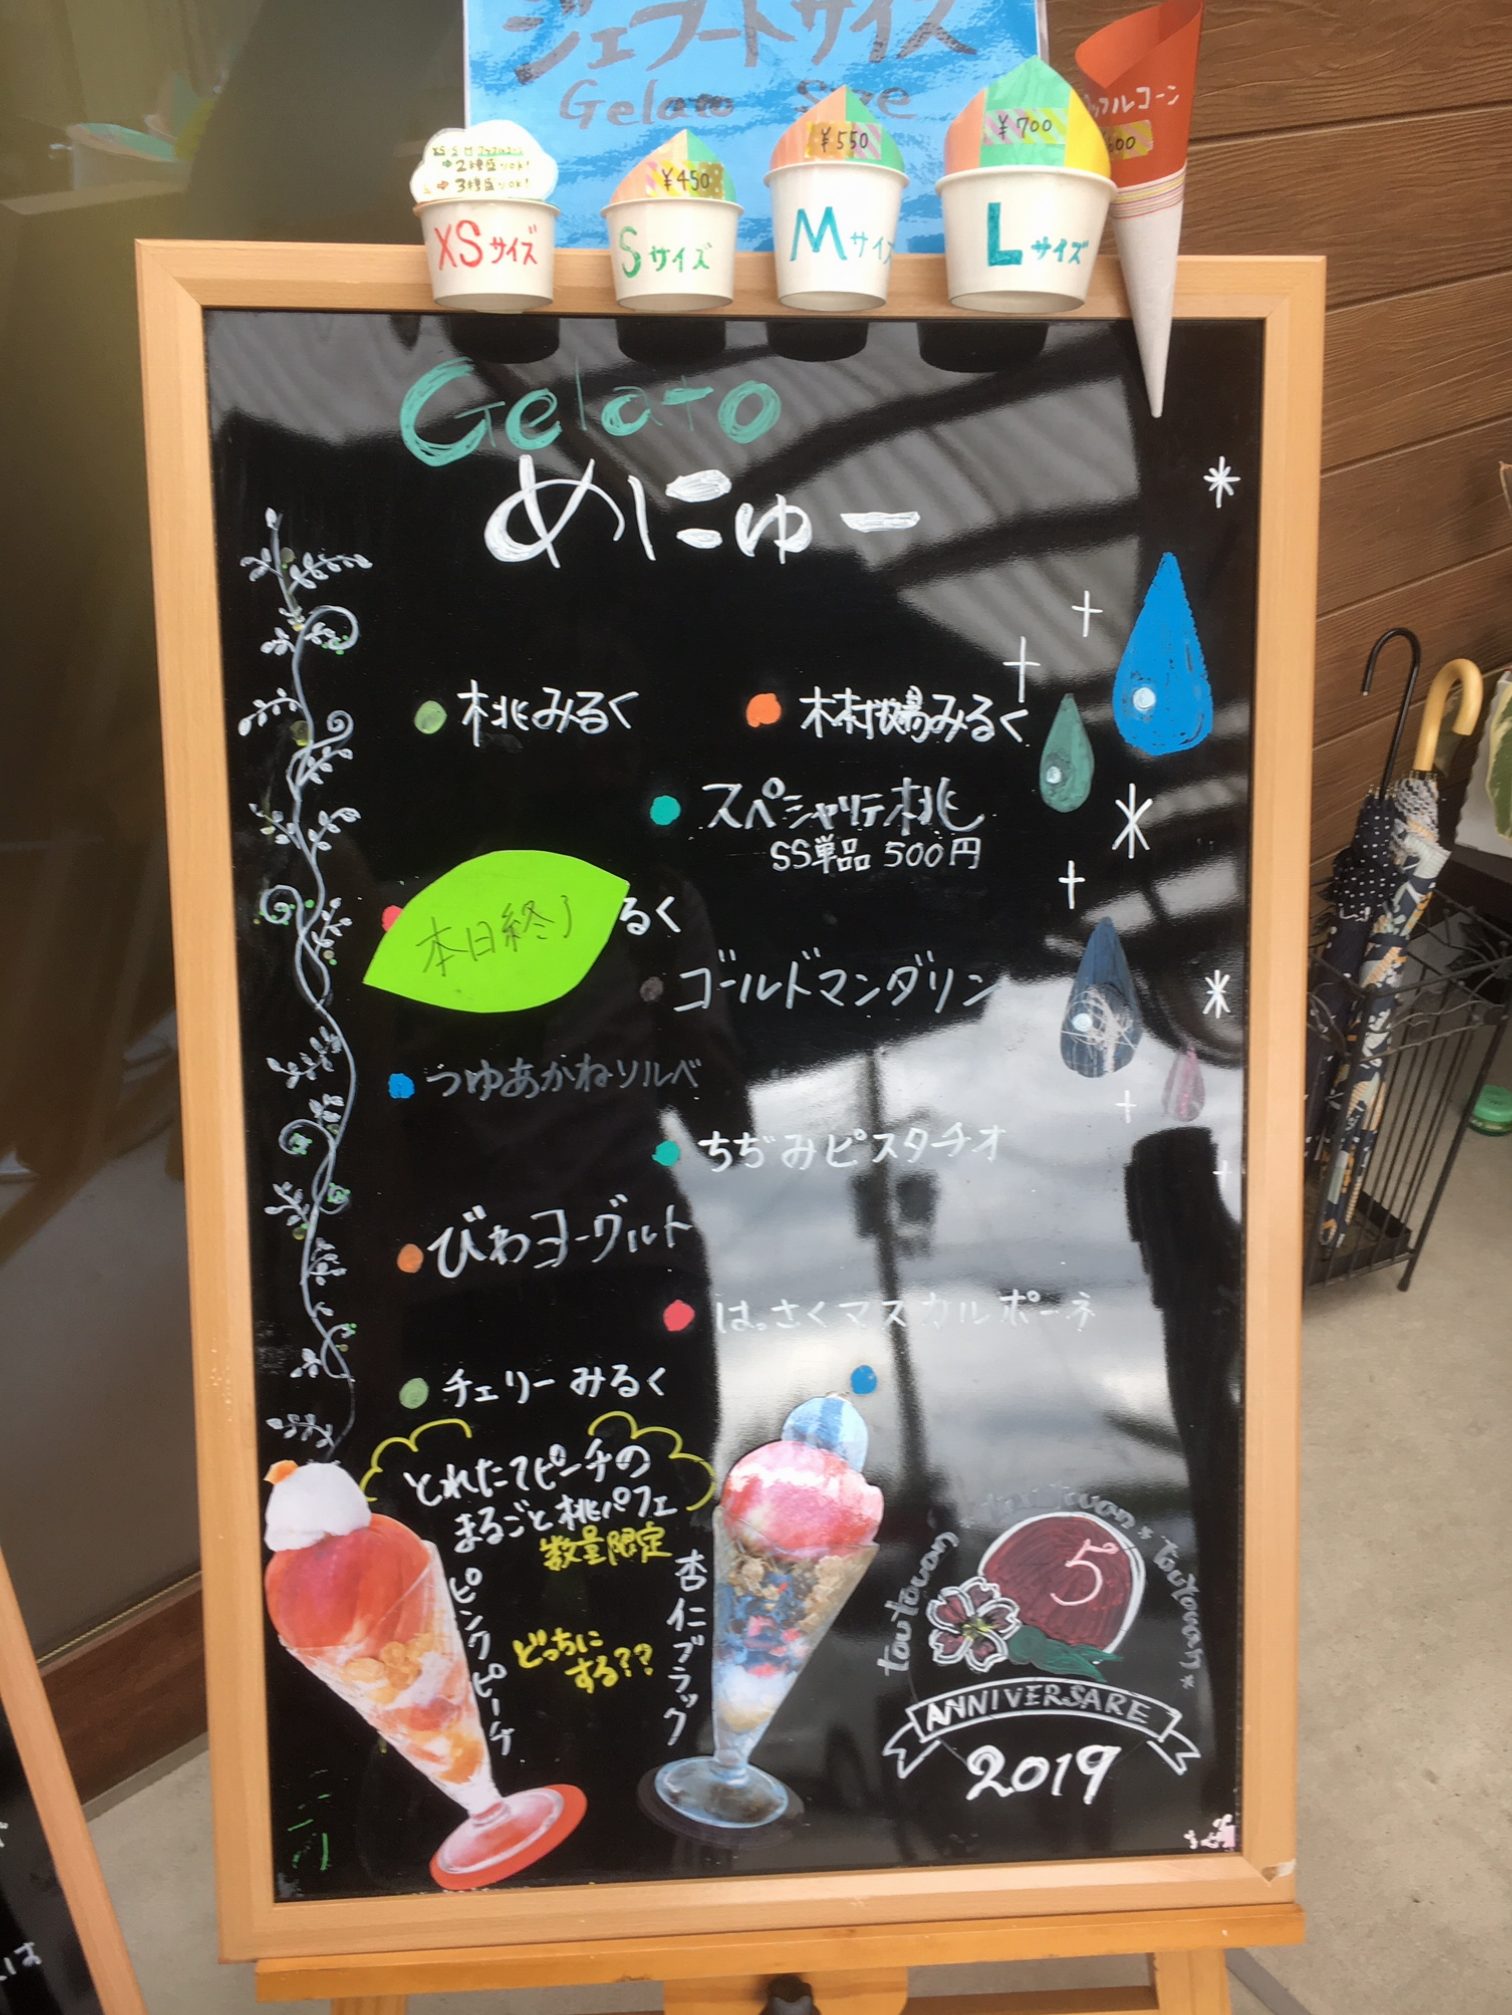 ジェラートサイズ
Gelato Size
¥450
¥550
¥700
ワッフルコーン
XSサイズ
Sサイズ
Mサイズ
Lサイズ
Gelato
めにゅー
桃みるく
木村牧場みるく
スペシャリテ桃
SS単品 500円
本日終了
るく
ゴールドマンダリン
つゆあかねソルベ
ちぢみピスタチオ
びわヨーグルト
はっさくマスカルポーネ
チェリーみるく
とれたてピーチの
まるごと桃パフェ
数量限定
ピンクピーチ
どっちに
する??
杏仁ブラック
toutouan * toutouan * toutouan *
5
ANNIVERSARE
2019